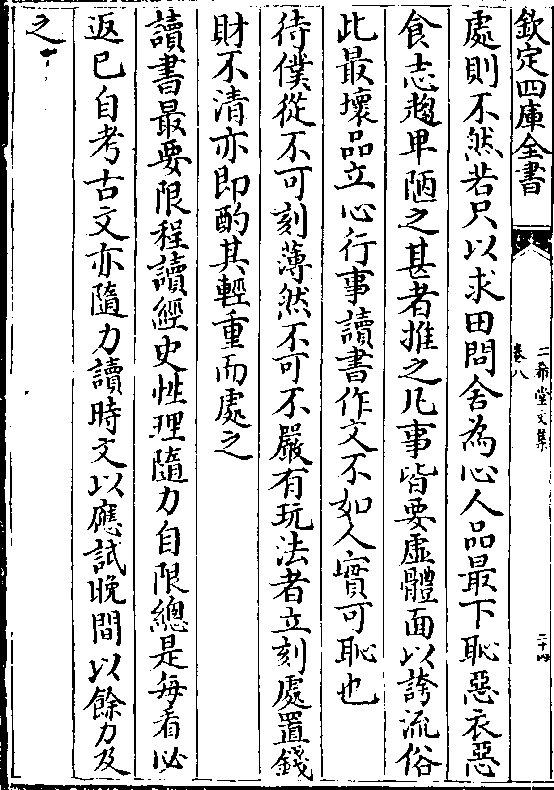 欽定四庫全書
二希堂文集
卷八
二十四
處則不然若只以求田問舍為心人品最下恥惡衣惡
食志趨卑陋之甚者推之凡事皆要虛體面以誇流俗
此最壞品立心行事讀書作文不如人實可恥也
待僕從不可刻薄然不可不嚴有玩法者立刻處置錢
財不清亦即酌其輕重而處之
讀書最要限程讀經史性理隨力自限總是每看必
返己自考古文亦隨力讀時文以應試晚間以餘力及
之